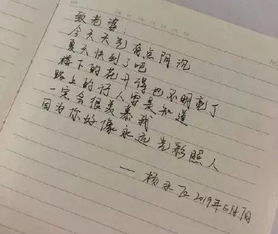 致老婆
今天天气有点阴沉
夏天快到了吧
楼下的花开得也不明朗了
路上的行人要是知道
一定会很羡慕我
因为你好像永远光彩照人
2019年5月7日